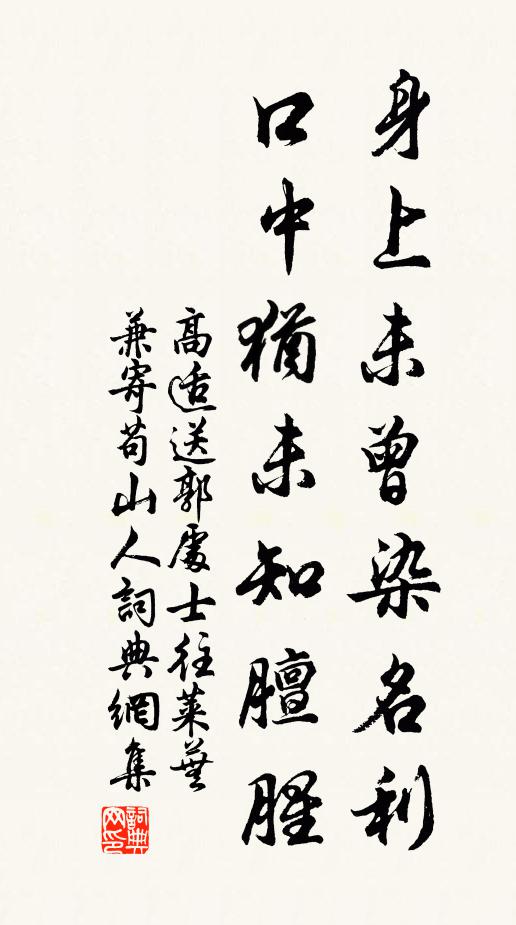 身上未曾染名利
口中猶未知膻腥
高适送郭處士往萊蕪
兼寄苟山人詞典網集
詞典网印